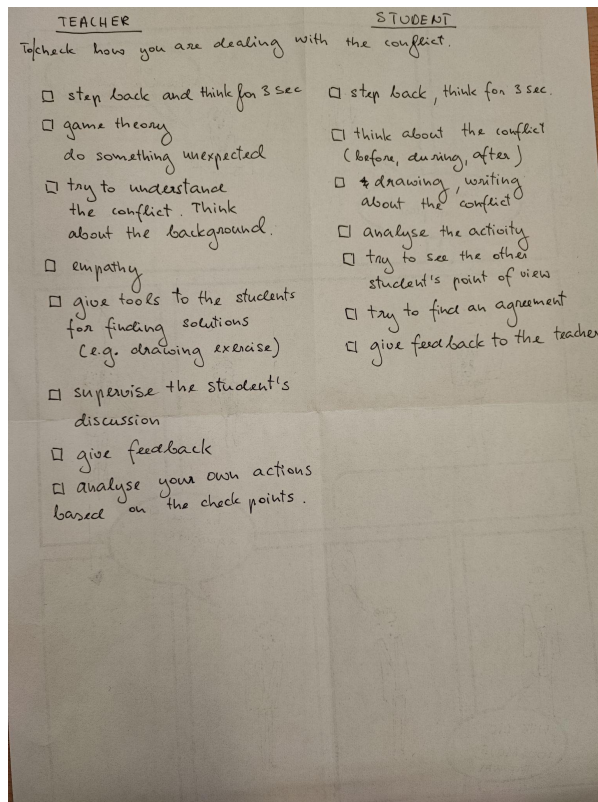 TEACHER
STUDENT
To check how you are dealing with the conflict.
☐ step back and think for 3 sec
☐ game theory
do something unexpected
☐ try to understand
the conflict. Think
about the background.
☐ empathy
☐ give tools to the students
for finding solutions
(e.g. drawing exercise)
☐ supervise the student's
discussion
☐ give feedback
☐ analyse your own actions
based on the check points.
☐ step back, think for 3 sec.
☐ think about the conflict
(before, during, after)
☐ drawing, writing
about the conflict
☐ analyse the activity
☐ try to see the other
student's point of view
☐ try to find an agreement
☐ give feedback to the teacher